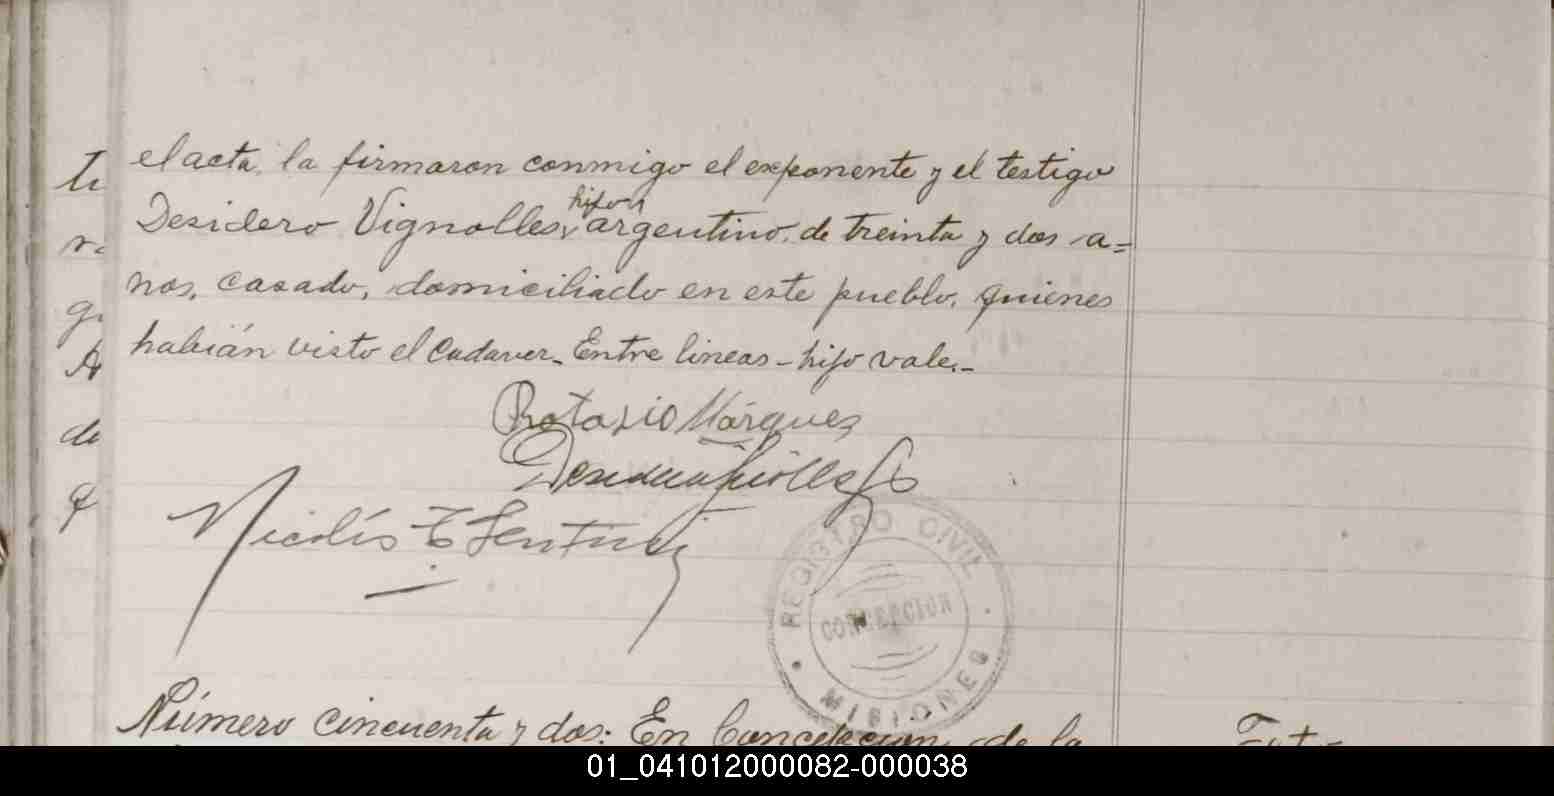 el acta, la firmaron conmigo el exponente y el testigo
Desidero Vignolles, hijo, argentino, de treinta y dos a=
ños, casado, domiciliado en este pueblo, quienes
habián visto el cadaver_ Entre lineas - hijo vale._
Protasio Márquez
Nicolás
REGISTRO CIVIL
CONCEPCION
MISIONES
Número cincuenta y dos: En Concepción de la
01_041012000082-000038